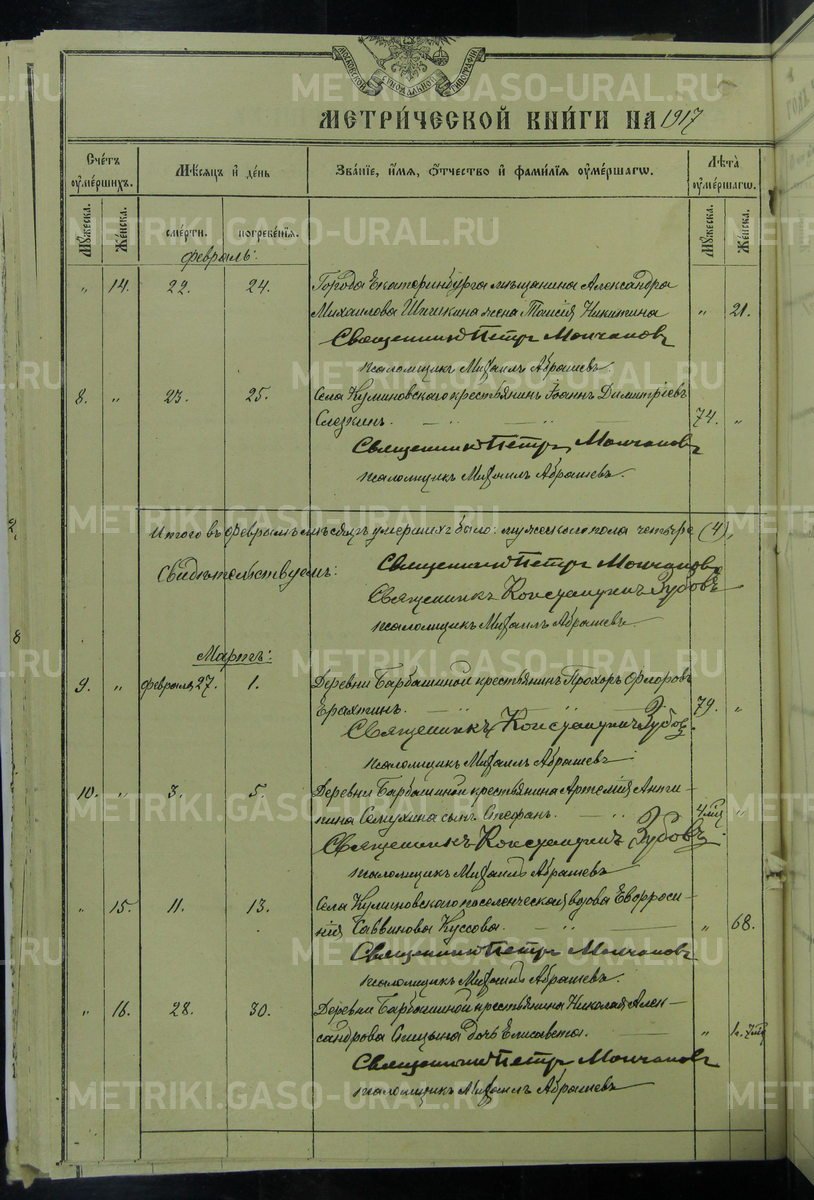 МЕТРИ́ЧЕСКОЙ КНИ́ГИ НА 1917
Сче́тъ ᲂумершихъ.
Мѣсяцъ и҆ день
Зва́нїе, и҆мя, ѻ҆тчество и҆ фамилїя ᲂумершагѡ.
Лѣта̀ ᲂумершагѡ.
Мꙋжеска. Же́нска. сме́рти. погребе́нїя. Мꙋжеска. Же́нска.
Февраль:
" 14. 22. 24. Города Екатеринбурга мѣщанина Александра
Михаилова жена Таисія Никитина " 21.
Священникъ Петръ Молчановъ
псаломщикъ Михаилъ Абрашевъ.
8. " 23. 25. Села крестьянинъ Іоаннъ Димитріевъ
Слезкинъ. 74. "
Священникъ Петръ Молчановъ
псаломщикъ Михаилъ Абрашевъ.
Итого въ Февралѣ мѣсяцѣ умершихъ было: мужескаго пола четыре (4),
Свидѣтельствуемъ: Священникъ Петръ Молчановъ
Священникъ Константинъ Зубовъ
псаломщикъ Михаилъ Абрашевъ.
Мартъ:
9. " февраля 27. 1. Деревни Барбашиной крестьянинъ Прохоръ Флоровъ
79. "
Священникъ Константинъ Зубовъ.
псаломщикъ Михаилъ Абрашевъ
10. " 3. 5. Деревни Барбашиной крестьянина Артемія Анти-
пина сынъ Стефанъ. 4 мѣс "
Священникъ Константинъ Зубовъ.
псаломщикъ Михаилъ Абрашевъ
" 15. 11. 13. Села поселенческая вдова Евфроси-
нія Саввинова Куссова. " 68.
Священникъ Петръ Молчановъ
псаломщикъ Михаилъ Абрашевъ.
" 16. 28. 30. Деревни Барбашиной крестьянина Николая Алек-
сандрова дочь Елисавета. "
Священникъ Петръ Молчановъ
псаломщикъ Михаилъ Абрашевъ
METRIKI.GASO-URAL.RU